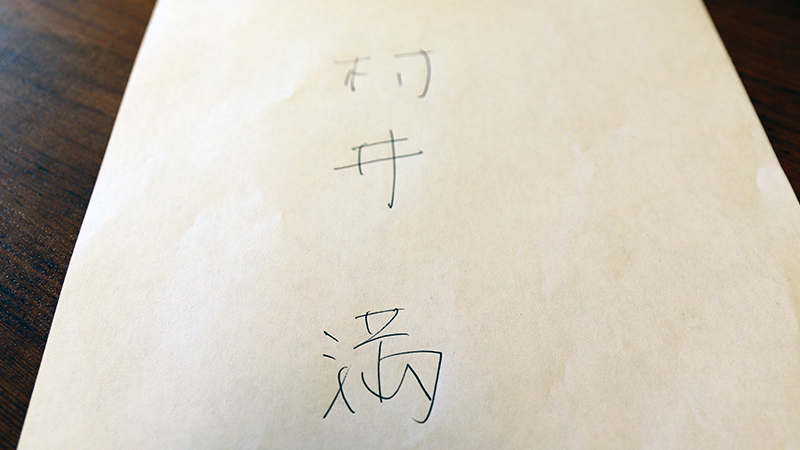 村井 満